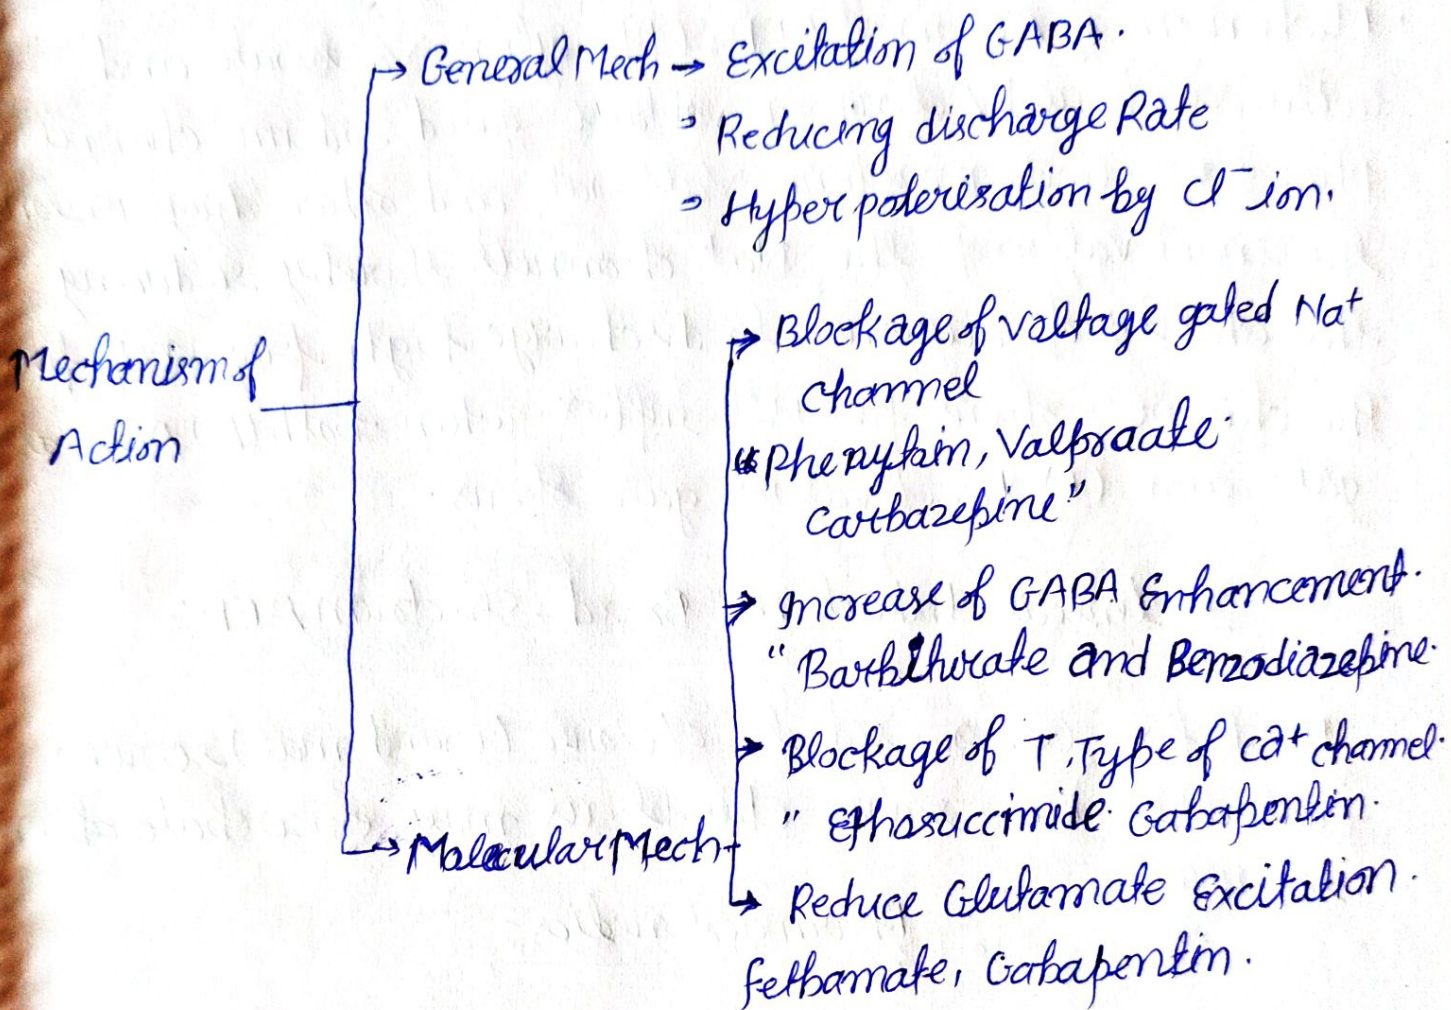 General Mech → Excitation of GABA.
Reducing discharge Rate
Hyper polerisation by Cl⁻ ion.
Mechanism of
Action
Blockage of Voltage gated Na⁺
channel
"Phenytain, Valproate
Carbazepine"
Increase of GABA Enhancement.
"Barbiturate and Benzodiazepine.
Blockage of T. Type of Ca⁺ channel.
" Ethosuccimide. Gabapentin.
Molecular Mech
Reduce Glutamate Excitation.
felbamate, Gabapentin.